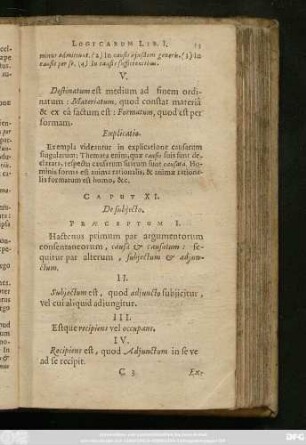 LOGICARUM LIB. I.
minus admittunt. (2) In causis ejusdem generis. (3) In
causis per se. (4) In causis sufficientibus.
V.
Destinatum est medium ad finem ordi-
natum: Materiatum, quod constat materiâ
& ex eâ factum est: Formatum, quod est per
formam.
Explicatio.
Exempla videantur in explicatione causarum
singularum: Themata enim, quæ causis suis sunt de-
clarata, respectu causarum suarum sunt causata. Ho-
minis forma est anima rationalis, & animæ rationa-
lis formatum est homo, &c.
CAPUT XI.
De subjecto.
PRÆCEPTUM I.
Hactenus primum par argumentorum
consentaneorum, causa & causatum: se-
quitur par alterum, subjectum & adjun-
ctum.
II.
Subjectum est, quod adjuncto subjicitur,
vel cui aliquid adjungitur.
III.
Estque recipiens vel occupans.
IV.
Recipiens est, quod Adjunctum in se vel
ad se recipit.
C 3